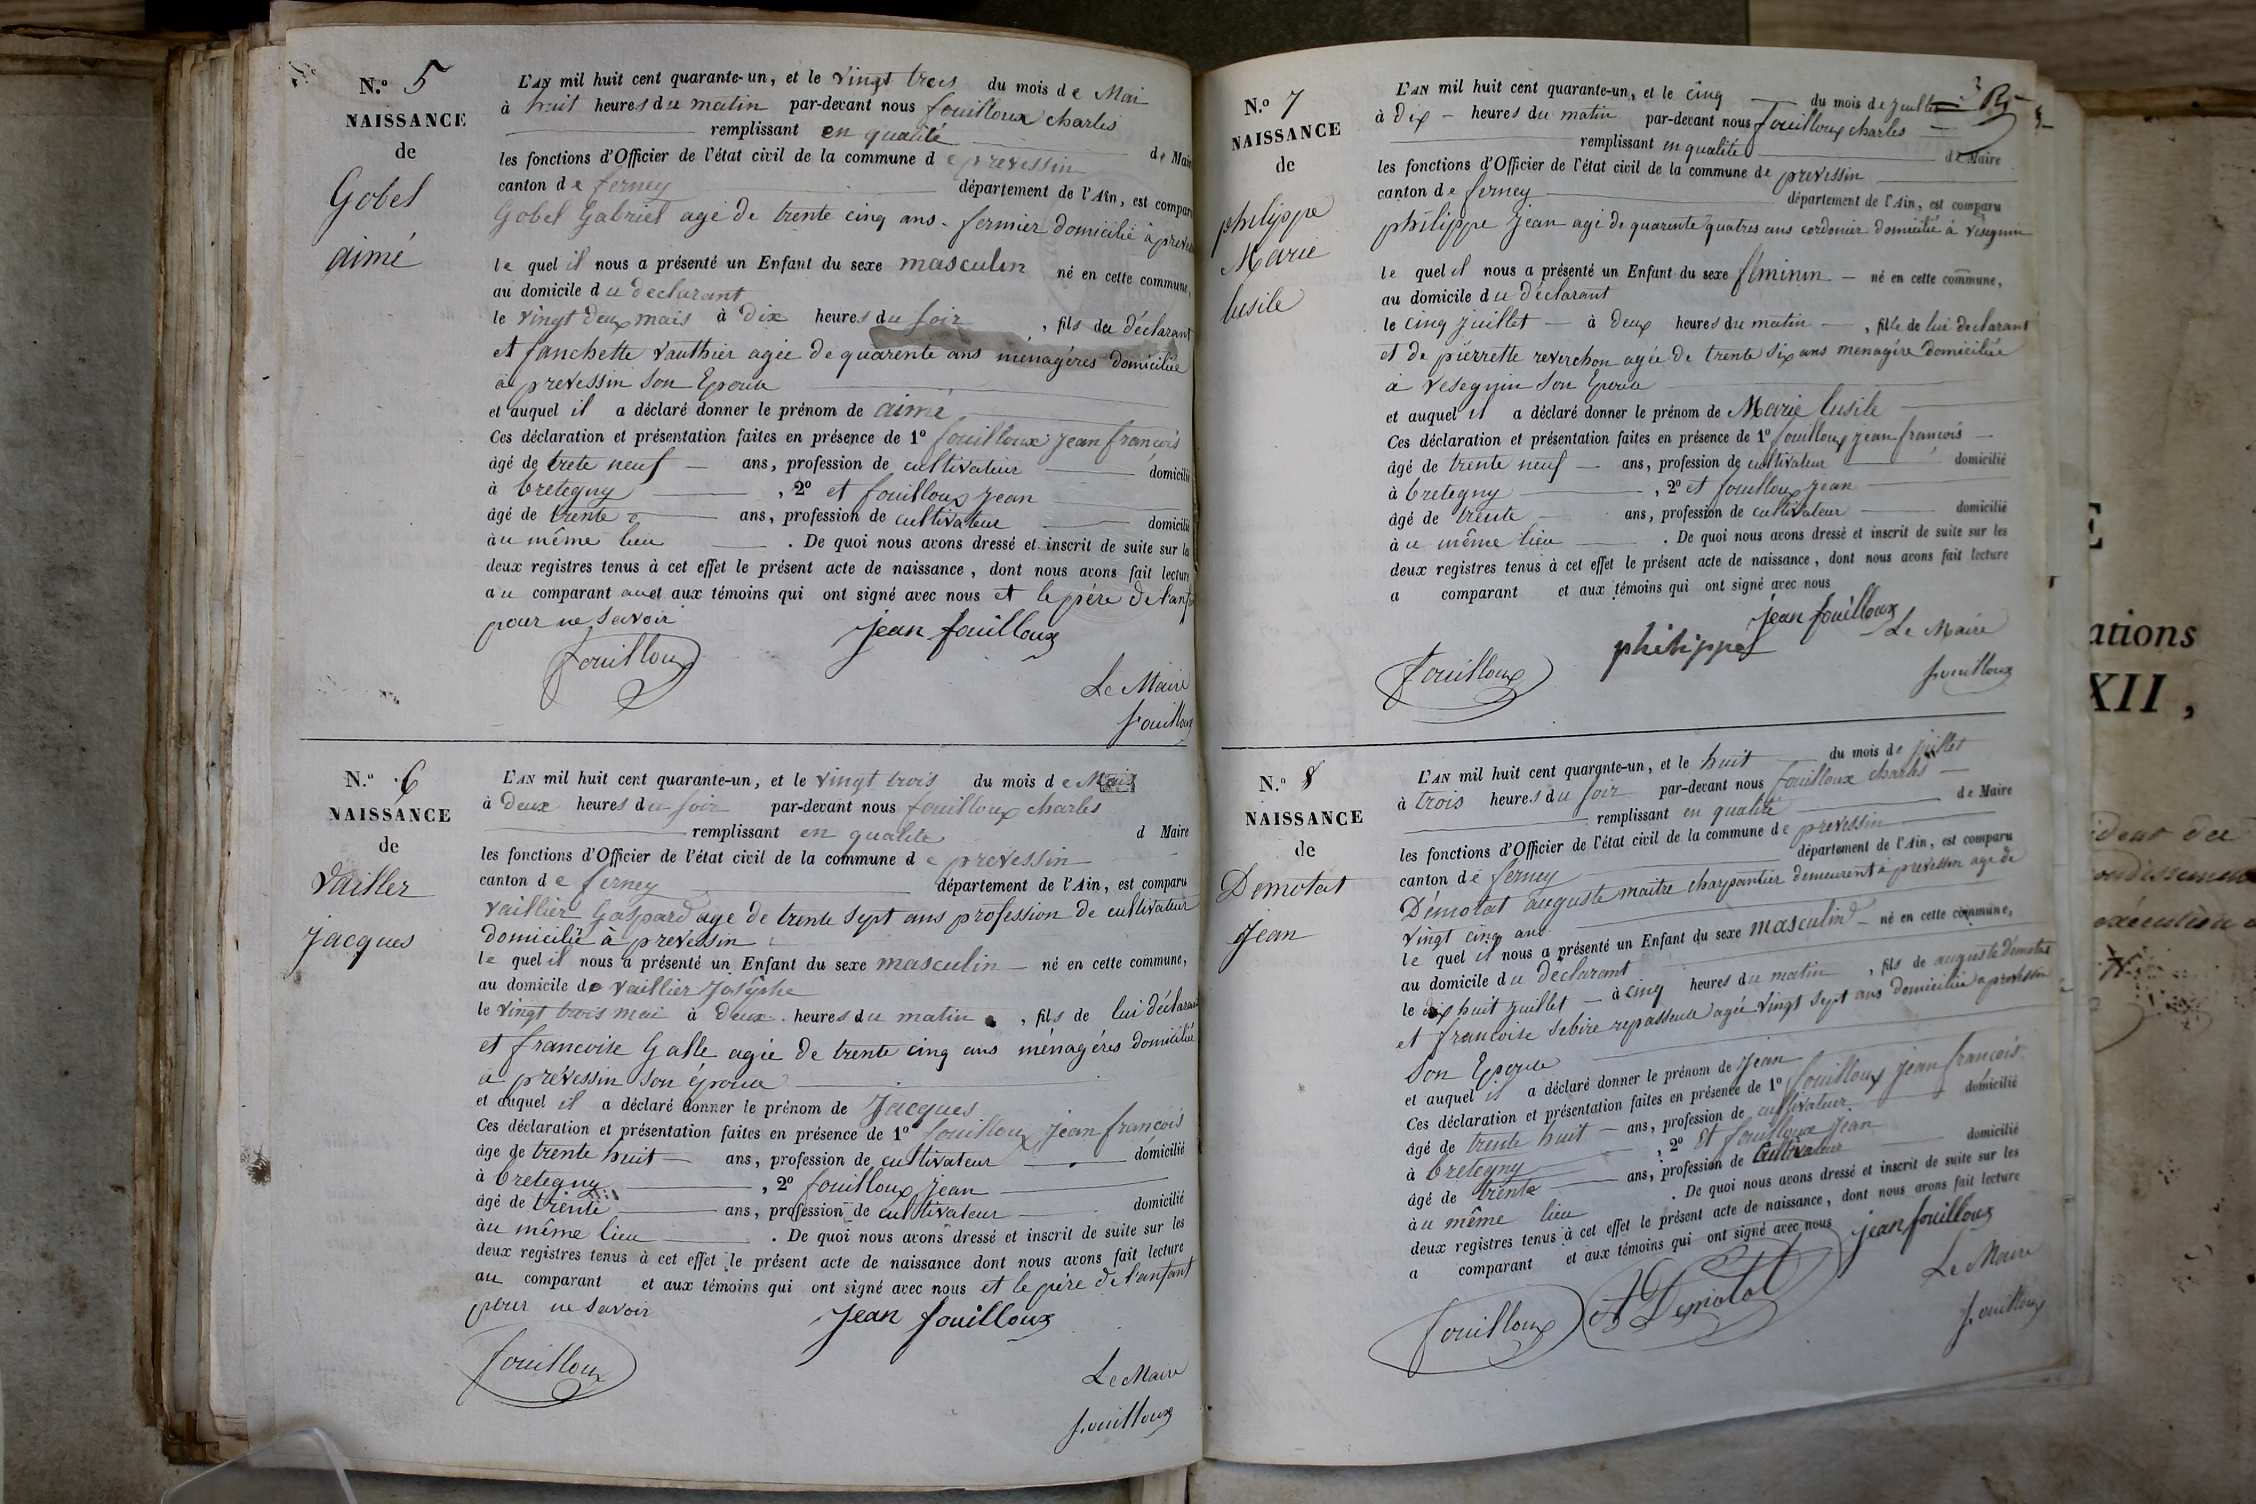 N.º 5
NAISSANCE
de
Gobel
aimé
L'AN mil huit cent quarante-un, et le vingt trois du mois de Mai
à huit heures du matin par-devant nous fouilloux charles
remplissant en qualité de Maire
les fonctions d'Officier de l'état civil de la commune de prevessin
canton de ferney département de l'Ain, est comparu
Gobel Gabriel agé de trente cinq ans. fermier domicilié à preves
le quel il nous a présenté un Enfant du sexe masculin né en cette commune,
au domicile du déclarant
le vingt deux mais à dix heures du soir, fils du déclarant
et fanchette vauthier agée de quarente ans ménagéres domiciliée
à prevessin son Epouse
et auquel il a déclaré donner le prénom de aimé
Ces déclaration et présentation faites en présence de 1º fouilloux jean françois
âgé de trete neuf ans, profession de cultivateur domicilié
à bretegny, 2º et fouilloux jean
âgé de trente ans, profession de cultivateur domicilié
àu même lieu. De quoi nous avons dressé et inscrit de suite sur le
deux registres tenus à cet effet le présent acte de naissance, dont nous avons fait lecture
au comparant et aux témoins qui ont signé avec nous et le père de l'anf
pour ne savoir
fouilloux jean fouilloux
Le Maire
fouilloux
N.º 6
NAISSANCE
de
Vaillier
jacques
L'AN mil huit cent quarante-un, et le vingt trois du mois de Mais
à deux heures du soir par-devant nous fouilloux charles
remplissant en qualité d Maire
les fonctions d'Officier de l'état civil de la commune de prevessin
canton de ferney département de l'Ain, est comparu
vaillier Gaspard age de trente sept ans profession de cultivateur
domicilié à prevessin
le quel il nous a présenté un Enfant du sexe masculin né en cette commune,
au domicile de vaillier Joséphe
le vingt trois mai à deux heures du matin, fils de lui déclarant
et francoise Galle agée de trente cinq ans ménagérés domiciliée
a prévessin son épouse
et auquel il a déclaré donner le prénom de Jacques
Ces déclaration et présentation faites en présence de 1º fouilloux jean françois
âge de trente huit ans, profession de cultivateur domicilié
à bretegny, 2º fouilloux jean
âgé de trente ans, profession de cultivateur domicilié
àu même lieu. De quoi nous avons dressé et inscrit de suite sur les
deux registres tenus à cet effet le présent acte de naissance dont nous avons fait lecture
au comparant et aux témoins qui ont signé avec nous et le père de l'anfant
pour ne savoir
fouilloux jean fouilloux
Le Maire
fouilloux
N.º 7
NAISSANCE
de
philippe
Marie
lusile
L'AN mil huit cent quarante-un, et le cinq du mois de juillet
à dix heures du matin par-devant nous fouilloux charles
remplissant en qualité de Maire
les fonctions d'Officier de l'état civil de la commune de prevessin
canton de ferney département de l'Ain, est comparu
philippe jean agé de quarente quatres ans cordonier domicilié à vésegnin
le quel il nous a présenté un Enfant du sexe féminin né en cette commune,
au domicile du déclarant
le cinq juillet à deux heures du matin, fille de lui declarant
et de pierrette reverchon agée de trente six ans menagére domiciliée
à vesegnin son Epouse
et auquel il a déclaré donner le prénom de Marie lusile
Ces déclaration et présentation faites en présence de 1º fouilloux jean françois
âgé de trente neuf ans, profession de cultivateur domicilié
à bretegny, 2º et fouilloux jean
âgé de trente ans, profession de cultivateur domicilié
àu même lieu. De quoi nous avons dressé et inscrit de suite sur les
deux registres tenus à cet effet le présent acte de naissance, dont nous avons fait lecture
a comparant et aux témoins qui ont signé avec nous
jean fouilloux
fouilloux philippe Le Maire
fouilloux
N.º 8
NAISSANCE
de
Demotat
jean
L'AN mil huit cent quarante-un, et le huit du mois de juillet
à trois heures du soir par-devant nous fouilloux charles
remplissant en qualité de Maire
les fonctions d'Officier de l'état civil de la commune de prevessin
canton de ferney département de l'Ain, est comparu
Démotat auguste maitre charpantier demeurent à prevessin age de
vingt cinq ans
le quel il nous a présenté un Enfant du sexe masculin né en cette commune,
au domicile du déclarant
le dix huit juillet à cinq heures du matin, fils de auguste démotat
et francoise sebire repasseuse agée vingt sept ans domiciliée a prevessin
son Epouse
et auquel il a déclaré donner le prénom de jean
Ces déclaration et présentation faites en présence de 1º fouilloux jean françois
âgé de trente huit ans, profession de cultivateur domicilié
à bretegny, 2º et fouilloux jean
âgé de trente ans, profession de cultivateur domicilié
àu même lieu. De quoi nous avons dressé et inscrit de suite sur les
deux registres tenus à cet effet le présent acte de naissance, dont nous avons fait lecture
a comparant et aux témoins qui ont signé avec nous jean fouilloux
fouilloux A Demotat Le Maire
fouilloux
E
ations
XII,